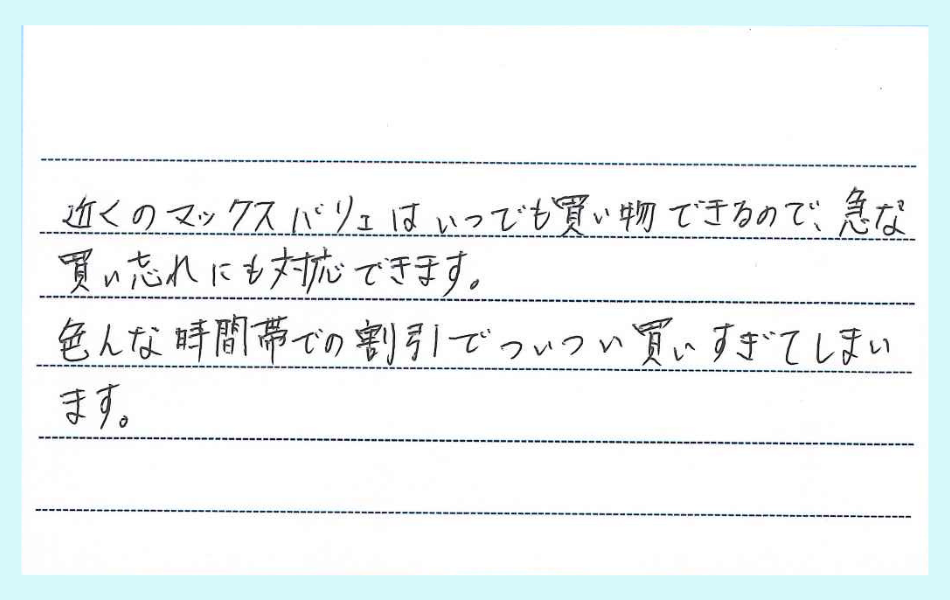 近くのマックスバリュはいつでも買い物できるので、急な
買い忘れにも対応できます。
色んな時間帯での割引でついつい買いすぎてしまい
ます。